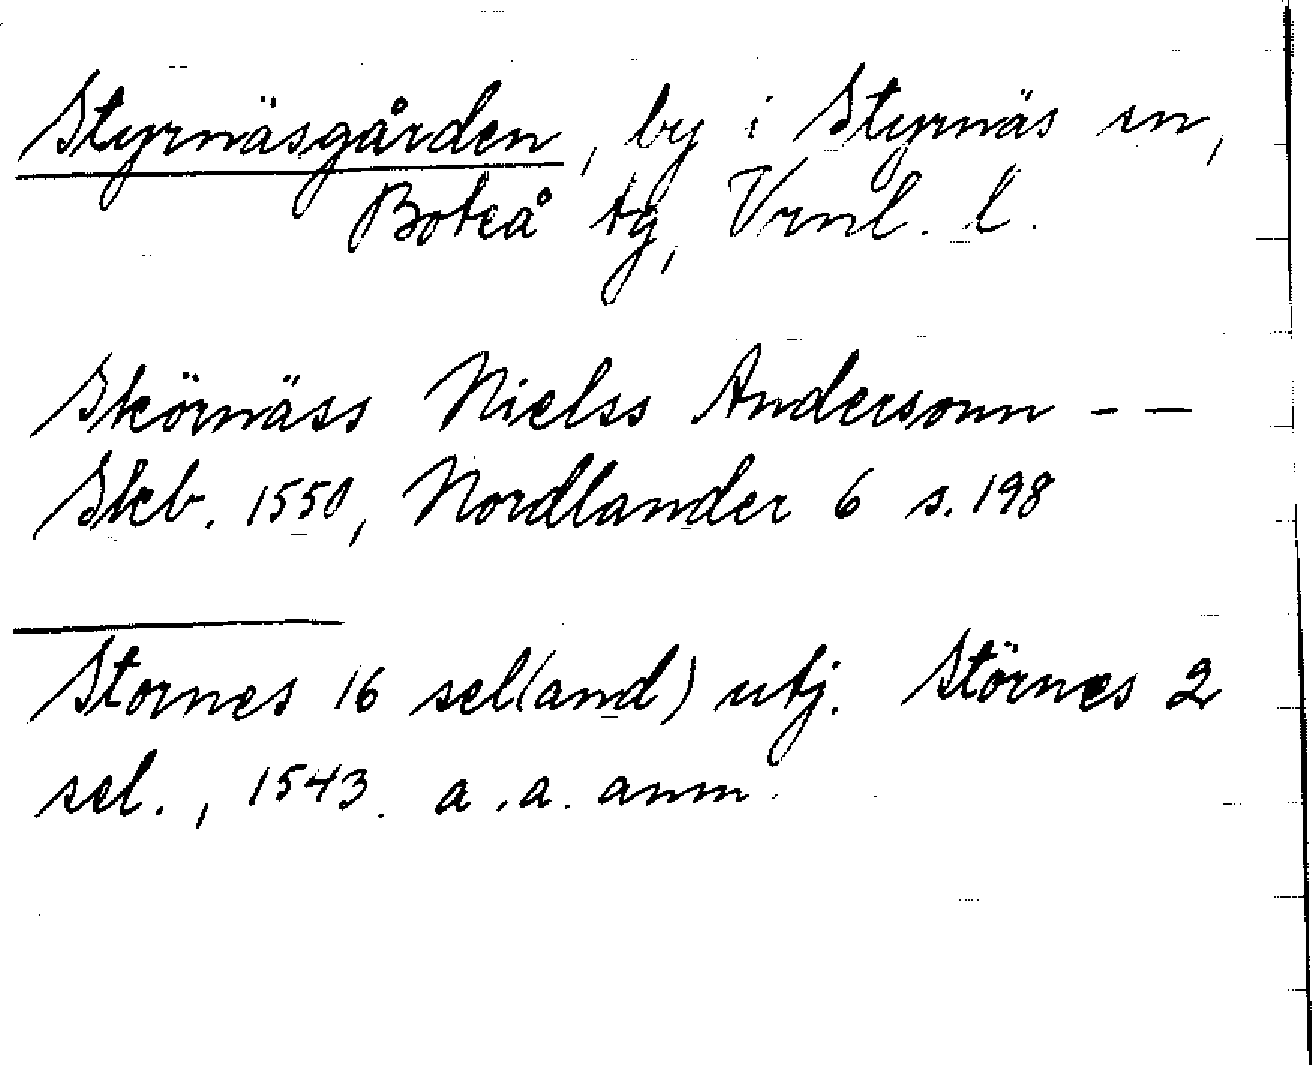 Styrnäsgården, by i Styrnäs sn,
Boteå tg, Vrnl. l.
Skörnäss Nielss Andersonn - -
Skb. 1550, Nordlander 6 s. 198
Stornes 16 sel(and) utj. Störnes 2
sel., 1543. a.a. anm.